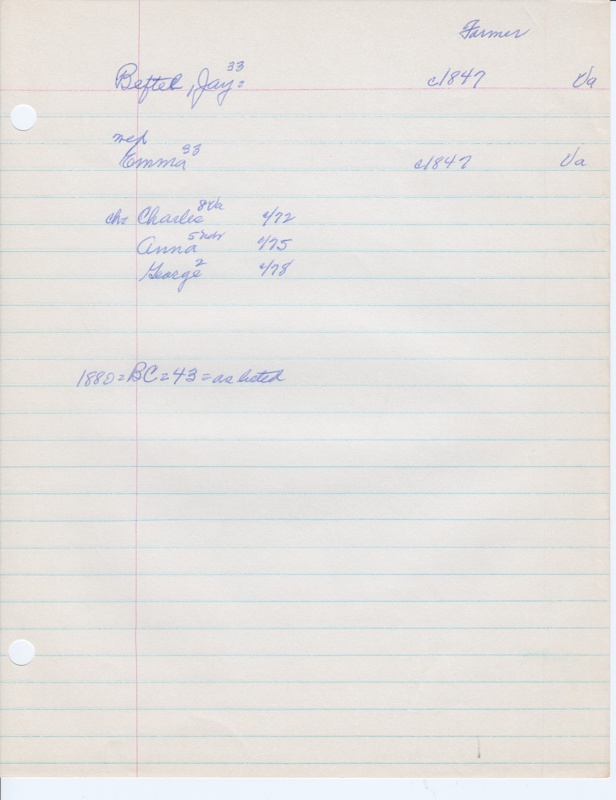 Farmer
Beftel, Jay = 33 c1847 Va
Emma 33 c1847 Va
ch = Charles 8 Va c/72
Anna 5 c/75
George 2 c/78
1880 = BC = 43 = as listed